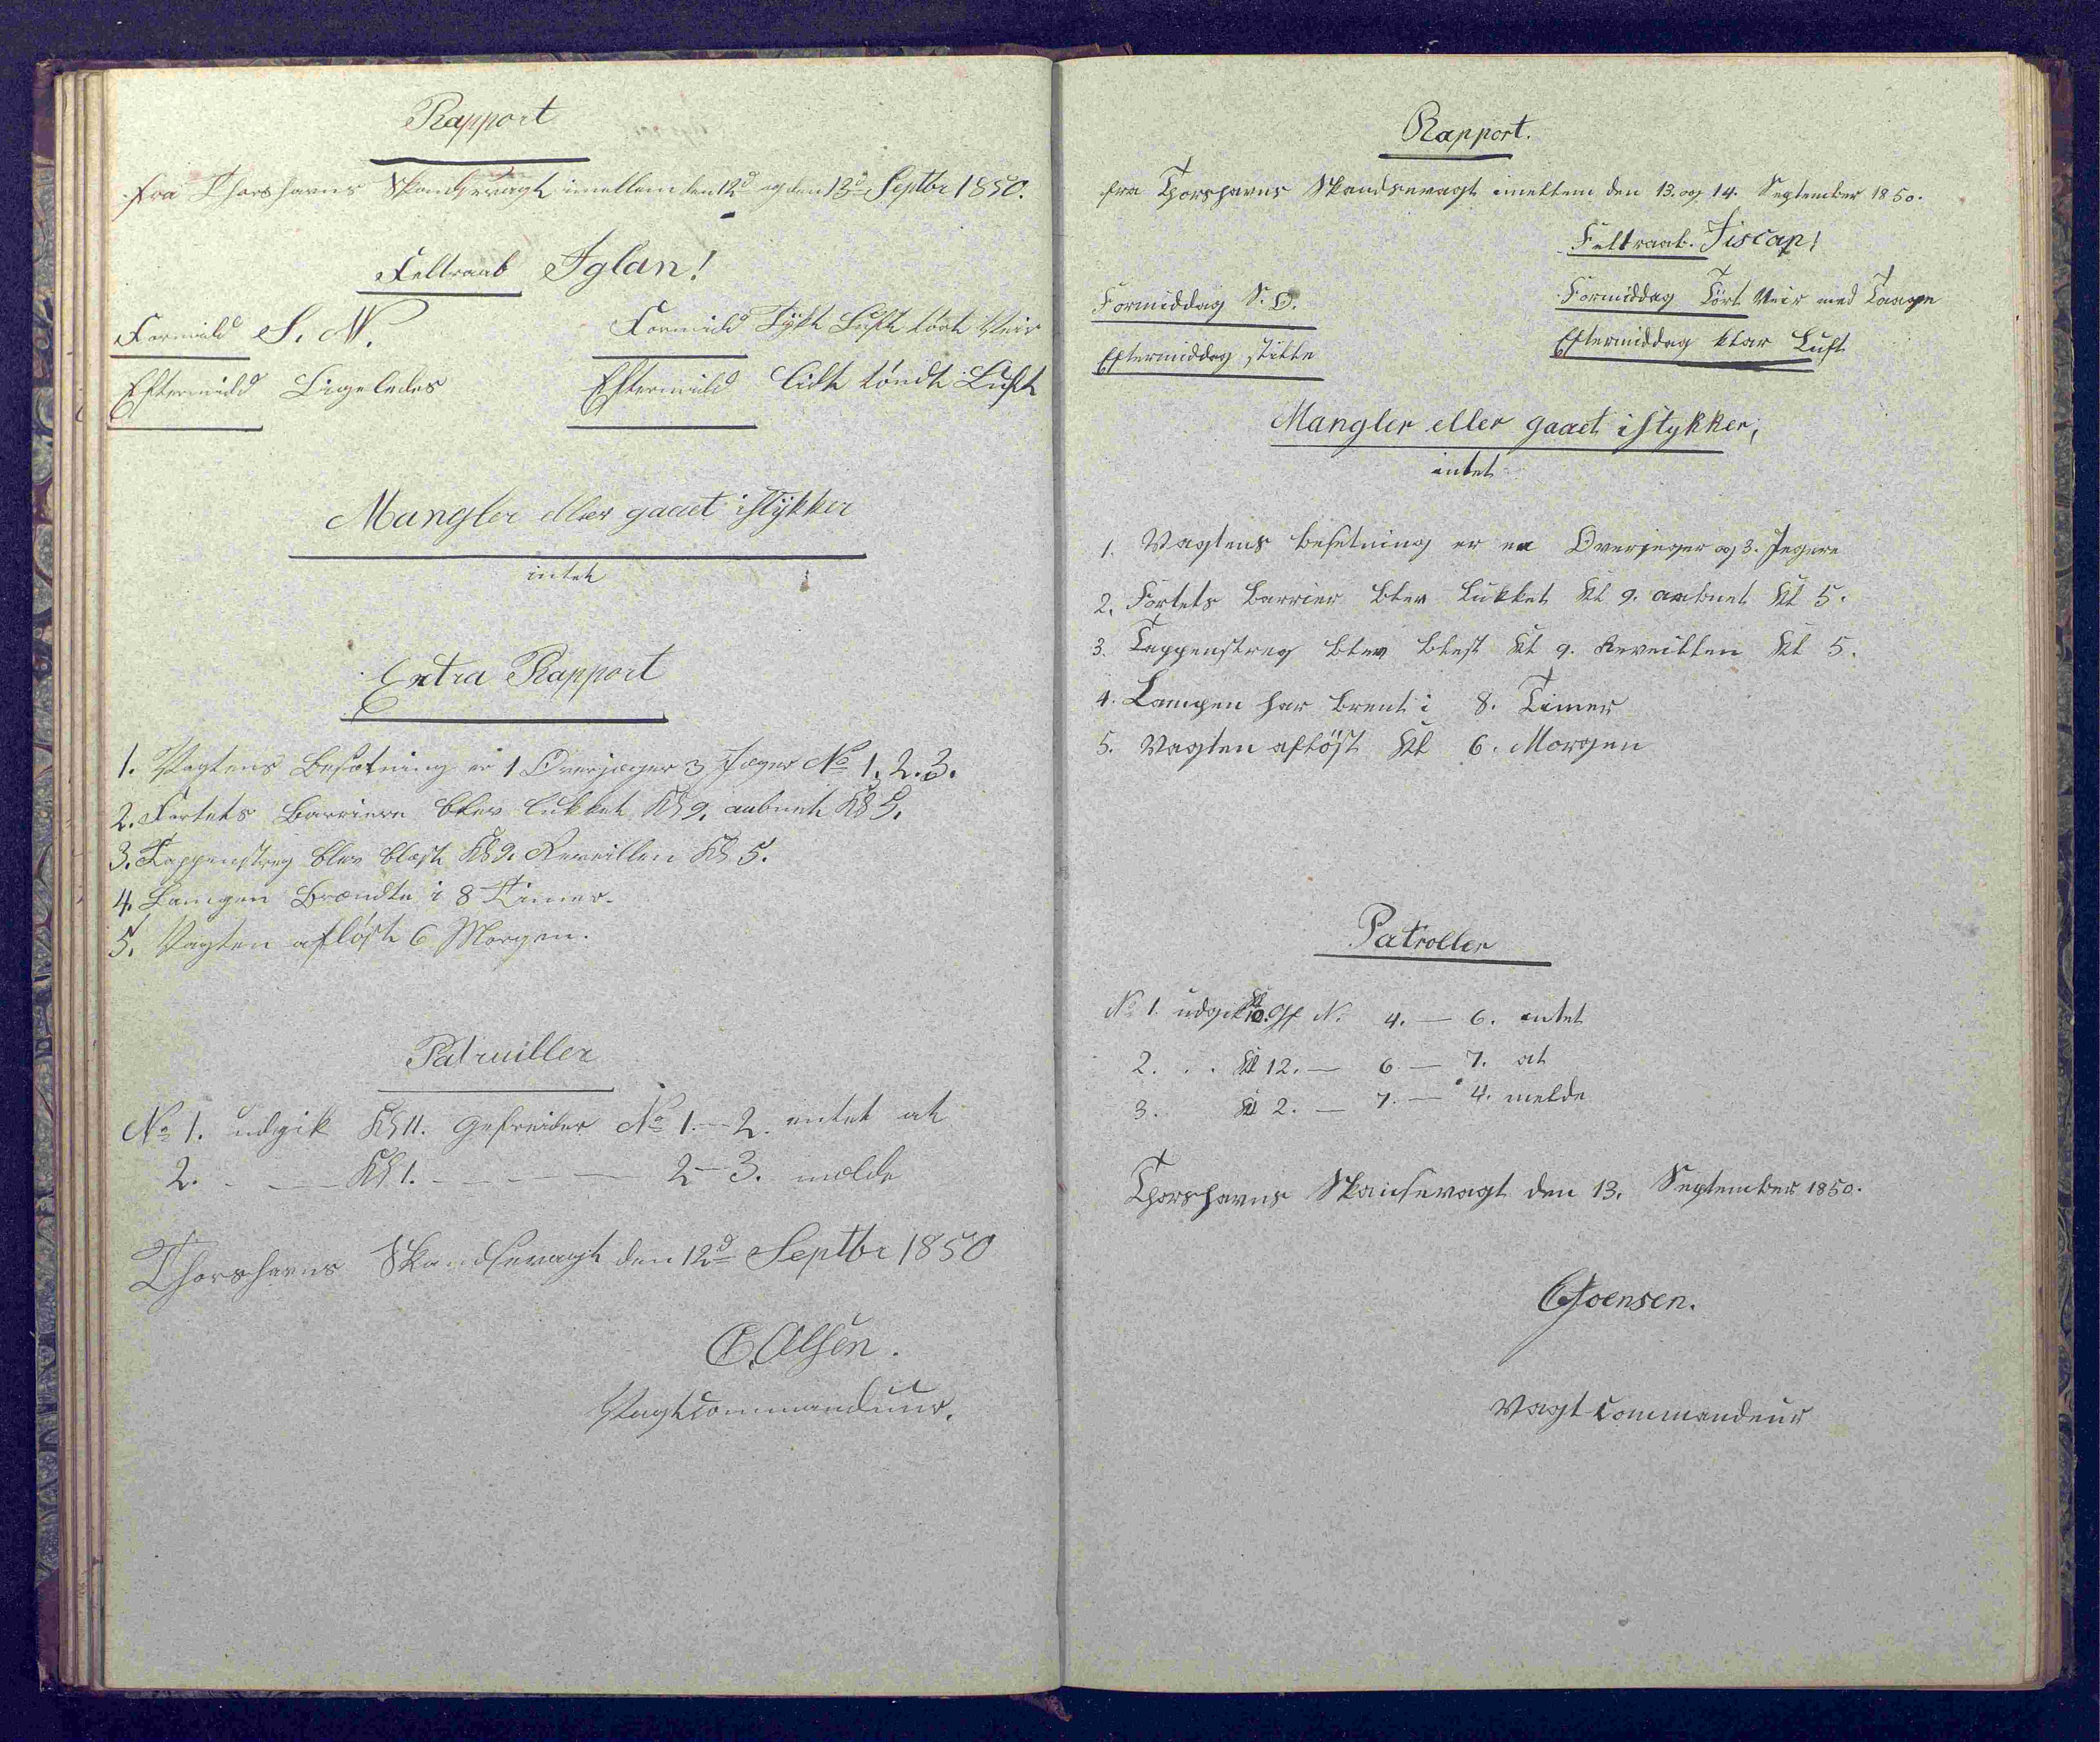 Rapport
fra Thorshavns Skandsevagt imellem den 12d og den 13d Septbr 1850.
Feltraab Iglan!
Formidd S. W.
Formidd Tÿk Luft tört Veir
Eftermidd Ligeledes
Eftermidd lidt töndt Luft
Mangler eller gaaet istÿkker
intet
Extra Rapport
1. Vagtens Besætning er 1 Overjæger 3 Jæger No 1. 2. 3.
2. Fortets Barriere blev lukket Kl 9, aabnet Kl 5.
3. Tappenstreg blev blæst Kl 9. Reveillen Kl 5.
4. Lampen Brændte i 8 Timer.
5. Vagten aflöst 6 Morgen.
Patruiller
No 1. udgik Kl 11. Gefreider No 1. — 2. intet at
2. - — Kl 1. - — - — 2 — 3. melde
Thorshavns Skandsevagt den 12d Septbr 1850
C. Olsen.
Vagtcommandeur.
Rapport.
fra Thorshavns Skandsevagt imellem den 13. og 14. September 1850.
Feltraab. Fiscap!
Formiddag S. O.
Formiddag Tört Veir med Taage
Eftermiddag stille
Eftermiddag klar Luft
Mangler eller gaaet istykker;
intet
1. Vagtens besetning er en Overjeger og 3. Jegere
2. Fortets barrier blev lukket Kl 9. aabnet Kl 5.
3. Tappenstreg blev blest Kl 9. Reveillen Kl 5.
4. Lampen har brent i 8. Timer
5. Vagten aflöst Kl 6. Morgen
Patroller
No 1. udgik Kl 10. Gf N. 4. — 6. intet
2. . . Kl 12. — 6 — 7. at
3. Kl 2. — 7. — 4. melde
Thorshavns Skansevagt den 13. September 1850.
Joensen.
Vagt Commandeur